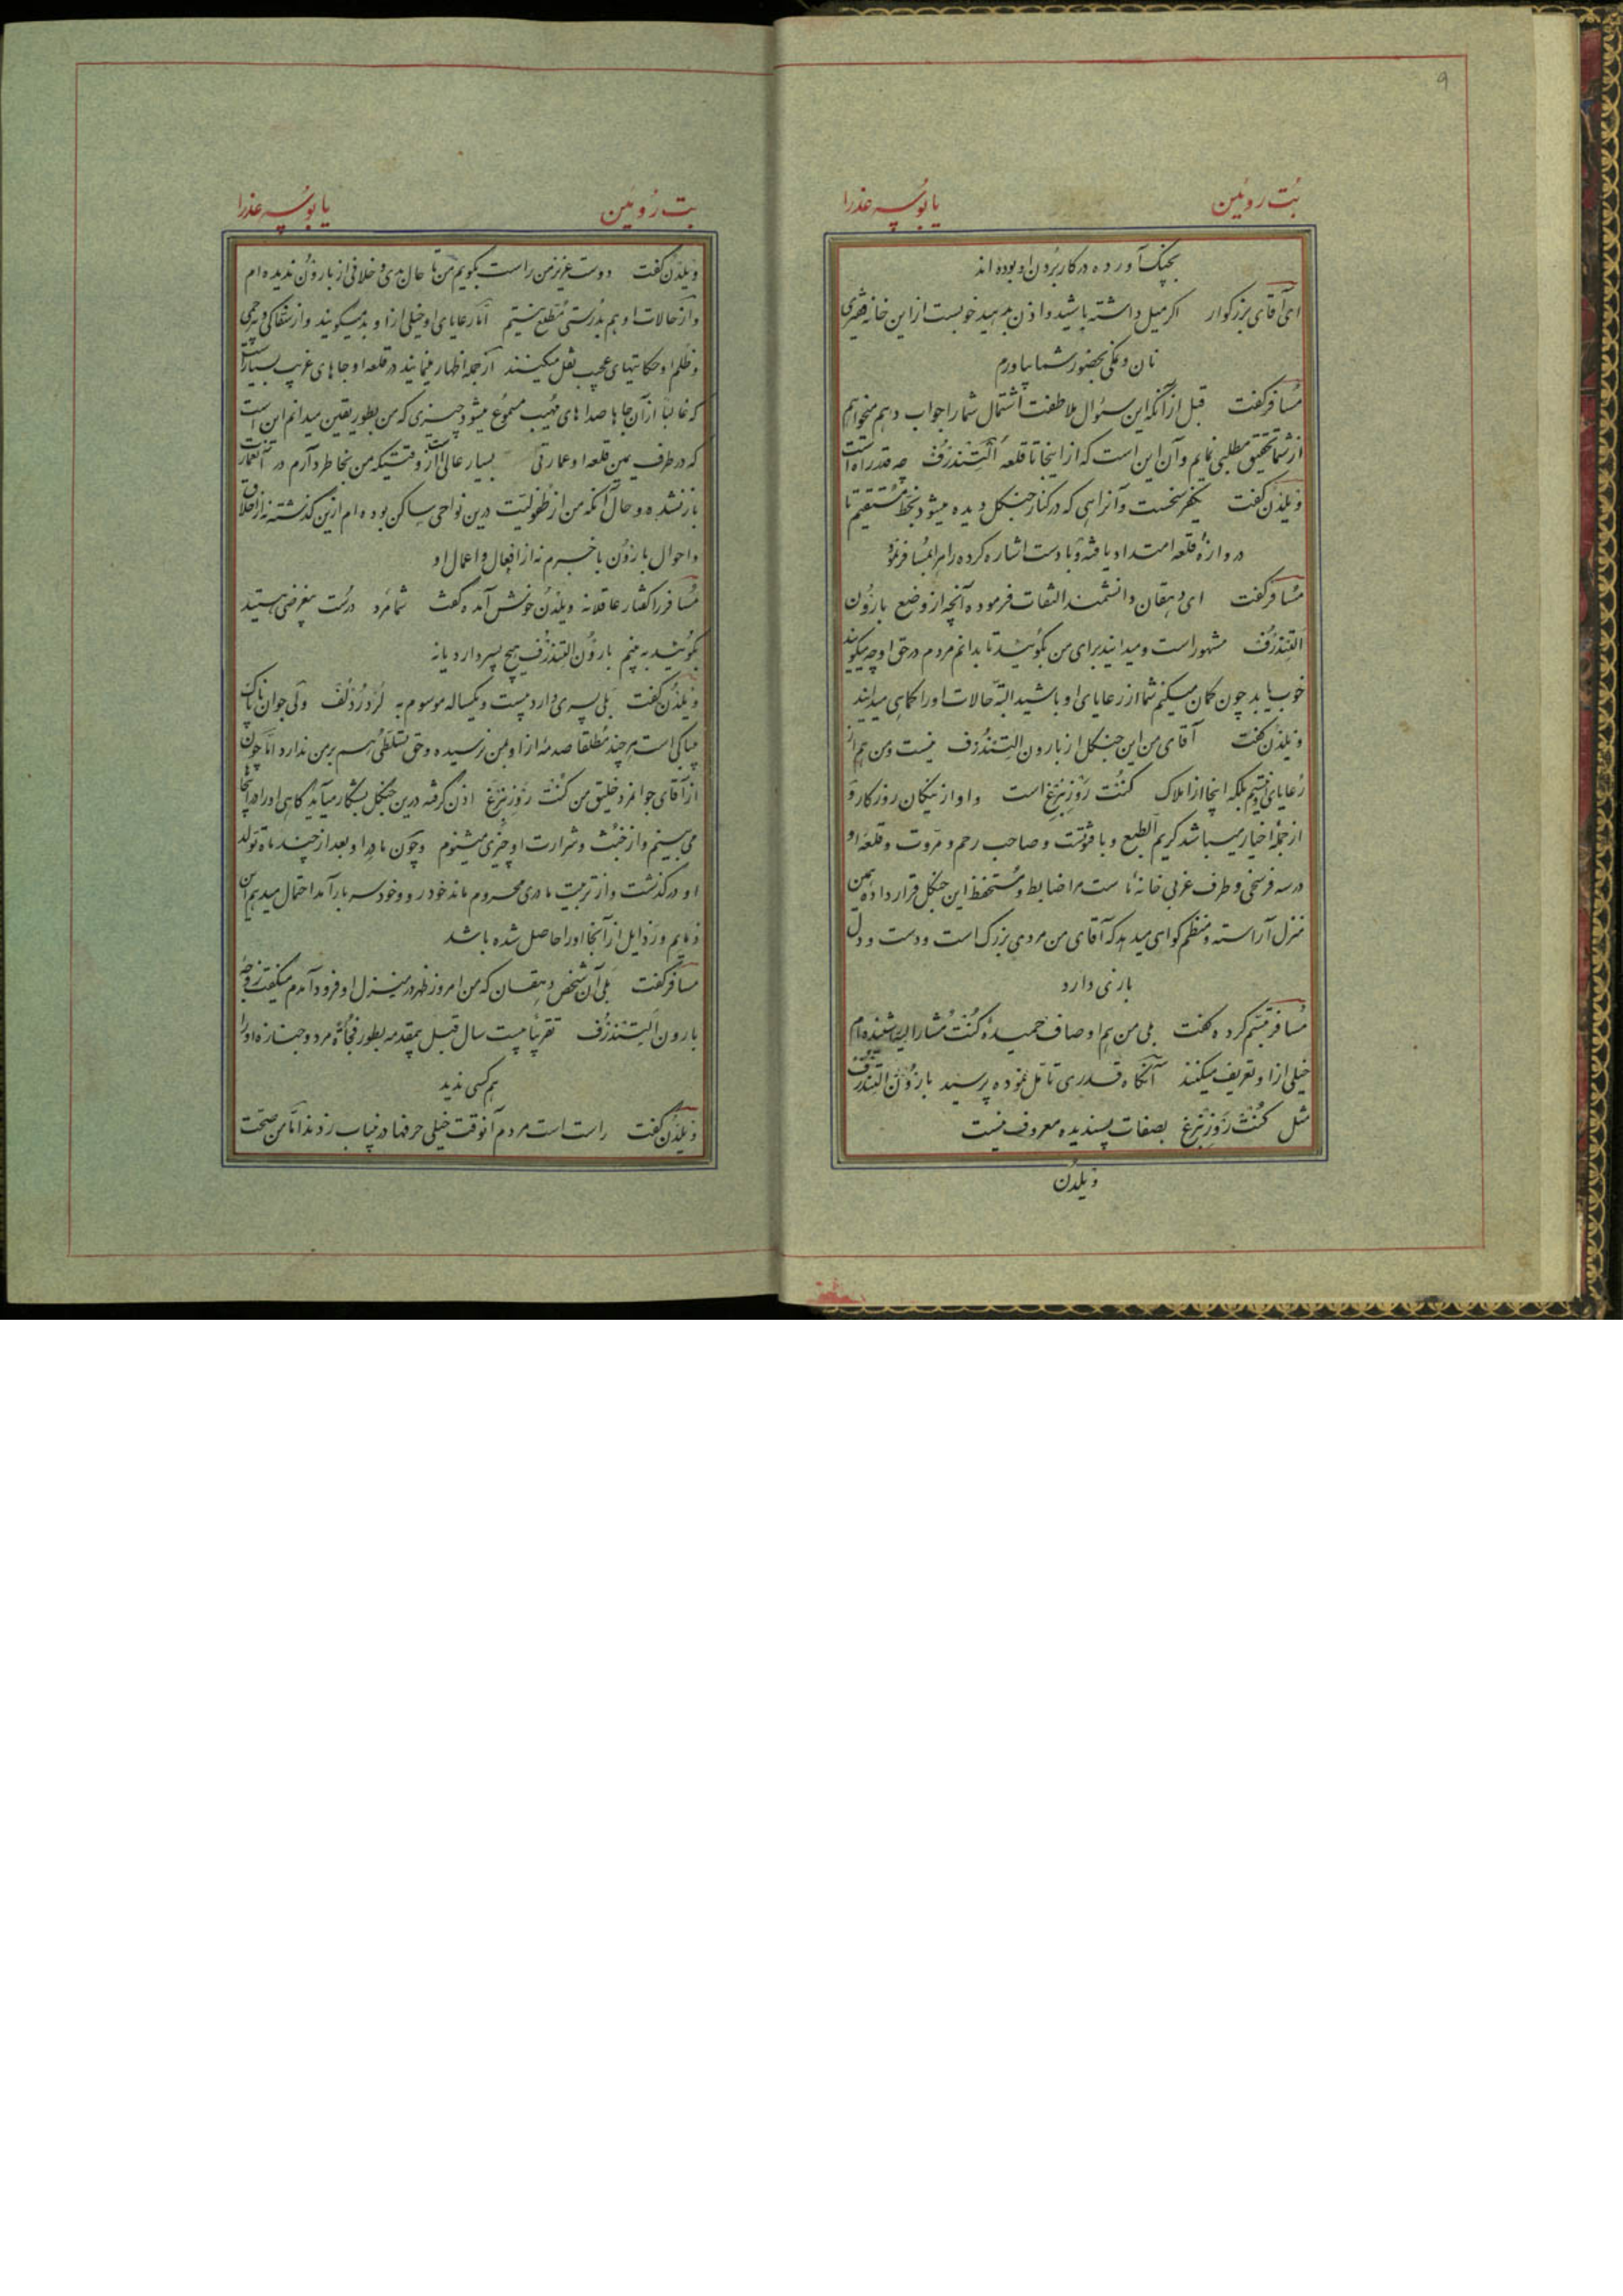 ۹
بُت روئین یا بوسه عذرا
بچنک آورده در کار بردن او بوده اند
ای آقای بزرکوار اکر میل داشته باشید و اذن بدهید خوبست از این خانه فقیری
نان و نمکی بحضور شما بیاورم
مسافر کفت قبل از آنکه این سئوال ملاطفت اشتمال شما را جواب دهم میخواهم
از شما تحقیق مطلبی نمایم و آن این است که از اینجا تا قلعه اَلتِندُرف چه قدر راه است
ویلدن کفت یکفرسخست و آنراهی که در کنار جنکل دیده میشود بخط مستقیم تا
دروازه قلعه امتداد یافته و با دست اشاره کرده راه را بمسافر نمود
مسافر کفت ای دهقان دانشمند التفات فرموده آنچه از وضع بارون
التندرف مشهور است و میدانید برای من بکوئید تا بدانم مردم در حق او چه میکویند
خوب باید چون کمان میکنم شما از رعایای او باشید البته حالات او را کماهی میدانید
ویلدن کفت آقای من این جنکل از بارون التندرف نیست و من هم از
رعایای او نیستم بلکه اینجا از املاک کنت رَوزنبرغ است و او از نیکان روزکار و
از جمله اخیار میباشد کریم الطبع و با فتوت و صاحب رحم و مروت و قلعه او
در سه فرسخی و طرف غربی خانه ما ست مرا ضابط و مستحفظ این جنکل قرار داده همین
منزل آراسته و منظم کواهی میدهد که آقای من مردی بزرک است و دست و دل
بازی دارد
مسافر تبسم کرده کفت بلی من هم اوصاف حمیده کنت مشار الیه را شنیده ام
خیلی از او تعریف میکنند آنکاه قدری تامل نموده پرسید بارون التندرف
مثل کنت رَوزنبرغ بصفات پسندیده معروف نیست
ویلدن
بت روئین یا بوسه عذرا
ویلدن کفت دوست عزیز من راست بکویم من تا حال بدی و خلافی از بارون ندیده ام
و از حالات او هم بدرستی مطلع نیستم اما رعایای او خیلی از او بد میکویند و از سفاکی و بیرحمی
و ظلم او حکایتهای عجیب نقل میکنند از جمله اظهار مینمایند در قلعه او جاهای غریب بسیار است
که غالبا از آن جاها صداهای مهیب مسموع میشود چیزی که من بطور یقین میدانم این است
که در طرف یمین قلعه او عمارتی بسیار عالی است از وقتیکه من بخاطر دارم در آنعمارت
باز نشده و حال آنکه من از طفولیت درین نواحی ساکن بوده ام ازین کذشته نه از اخلاق
و احوال بارون با خبرم نه از افعال و اعمال او
مسافر را کفتار عاقلانه ویلدن خوش آمده کفت شما مرد درست بیغرضی هستید
بکوئید به بینم بارون التندرف هیچ پسر دارد یا نه
ویلدن کفت بلی پسری دارد بیست و یکساله موسوم به لُرد رُدُلف ولی جوان ناپاک
بیباکی است هر چند مطلقا صدمه از او بمن نرسیده و حق تسلطی هم بر من ندارد اما چون
از آقای جوانمرد خلیق من کنت رَوزنبرغ اذن کرفته درین جنکل بشکار میآید کاهی او را در اینجا
می بینم و از خبث و شرارت او چیزی میشنوم و چون مادر او بعد از چند ماه تولد
او در کذشت و از تربیت مادری محروم ماند خود رو و خود سر بار آمد احتمال میدهم این
ذمایم و رذایل از آنجا او را حاصل شده باشد
مسافر کفت بلی آن شخص دهقان که من امروز ظهر در منزل او فرود آمدم میکفت زوجه
بارون اَلتِندُرف تقریبا بیست سال قبل بیمقدمه بطور فجاة مرد و جنازه او را
هم کسی ندید
ویلدن کفت راست است مردم آنوقت خیلی حرفها درینباب زدند اما من صحت